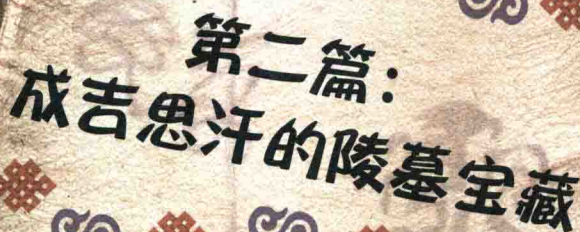 第二篇：
成吉思汗的陵墓宝藏